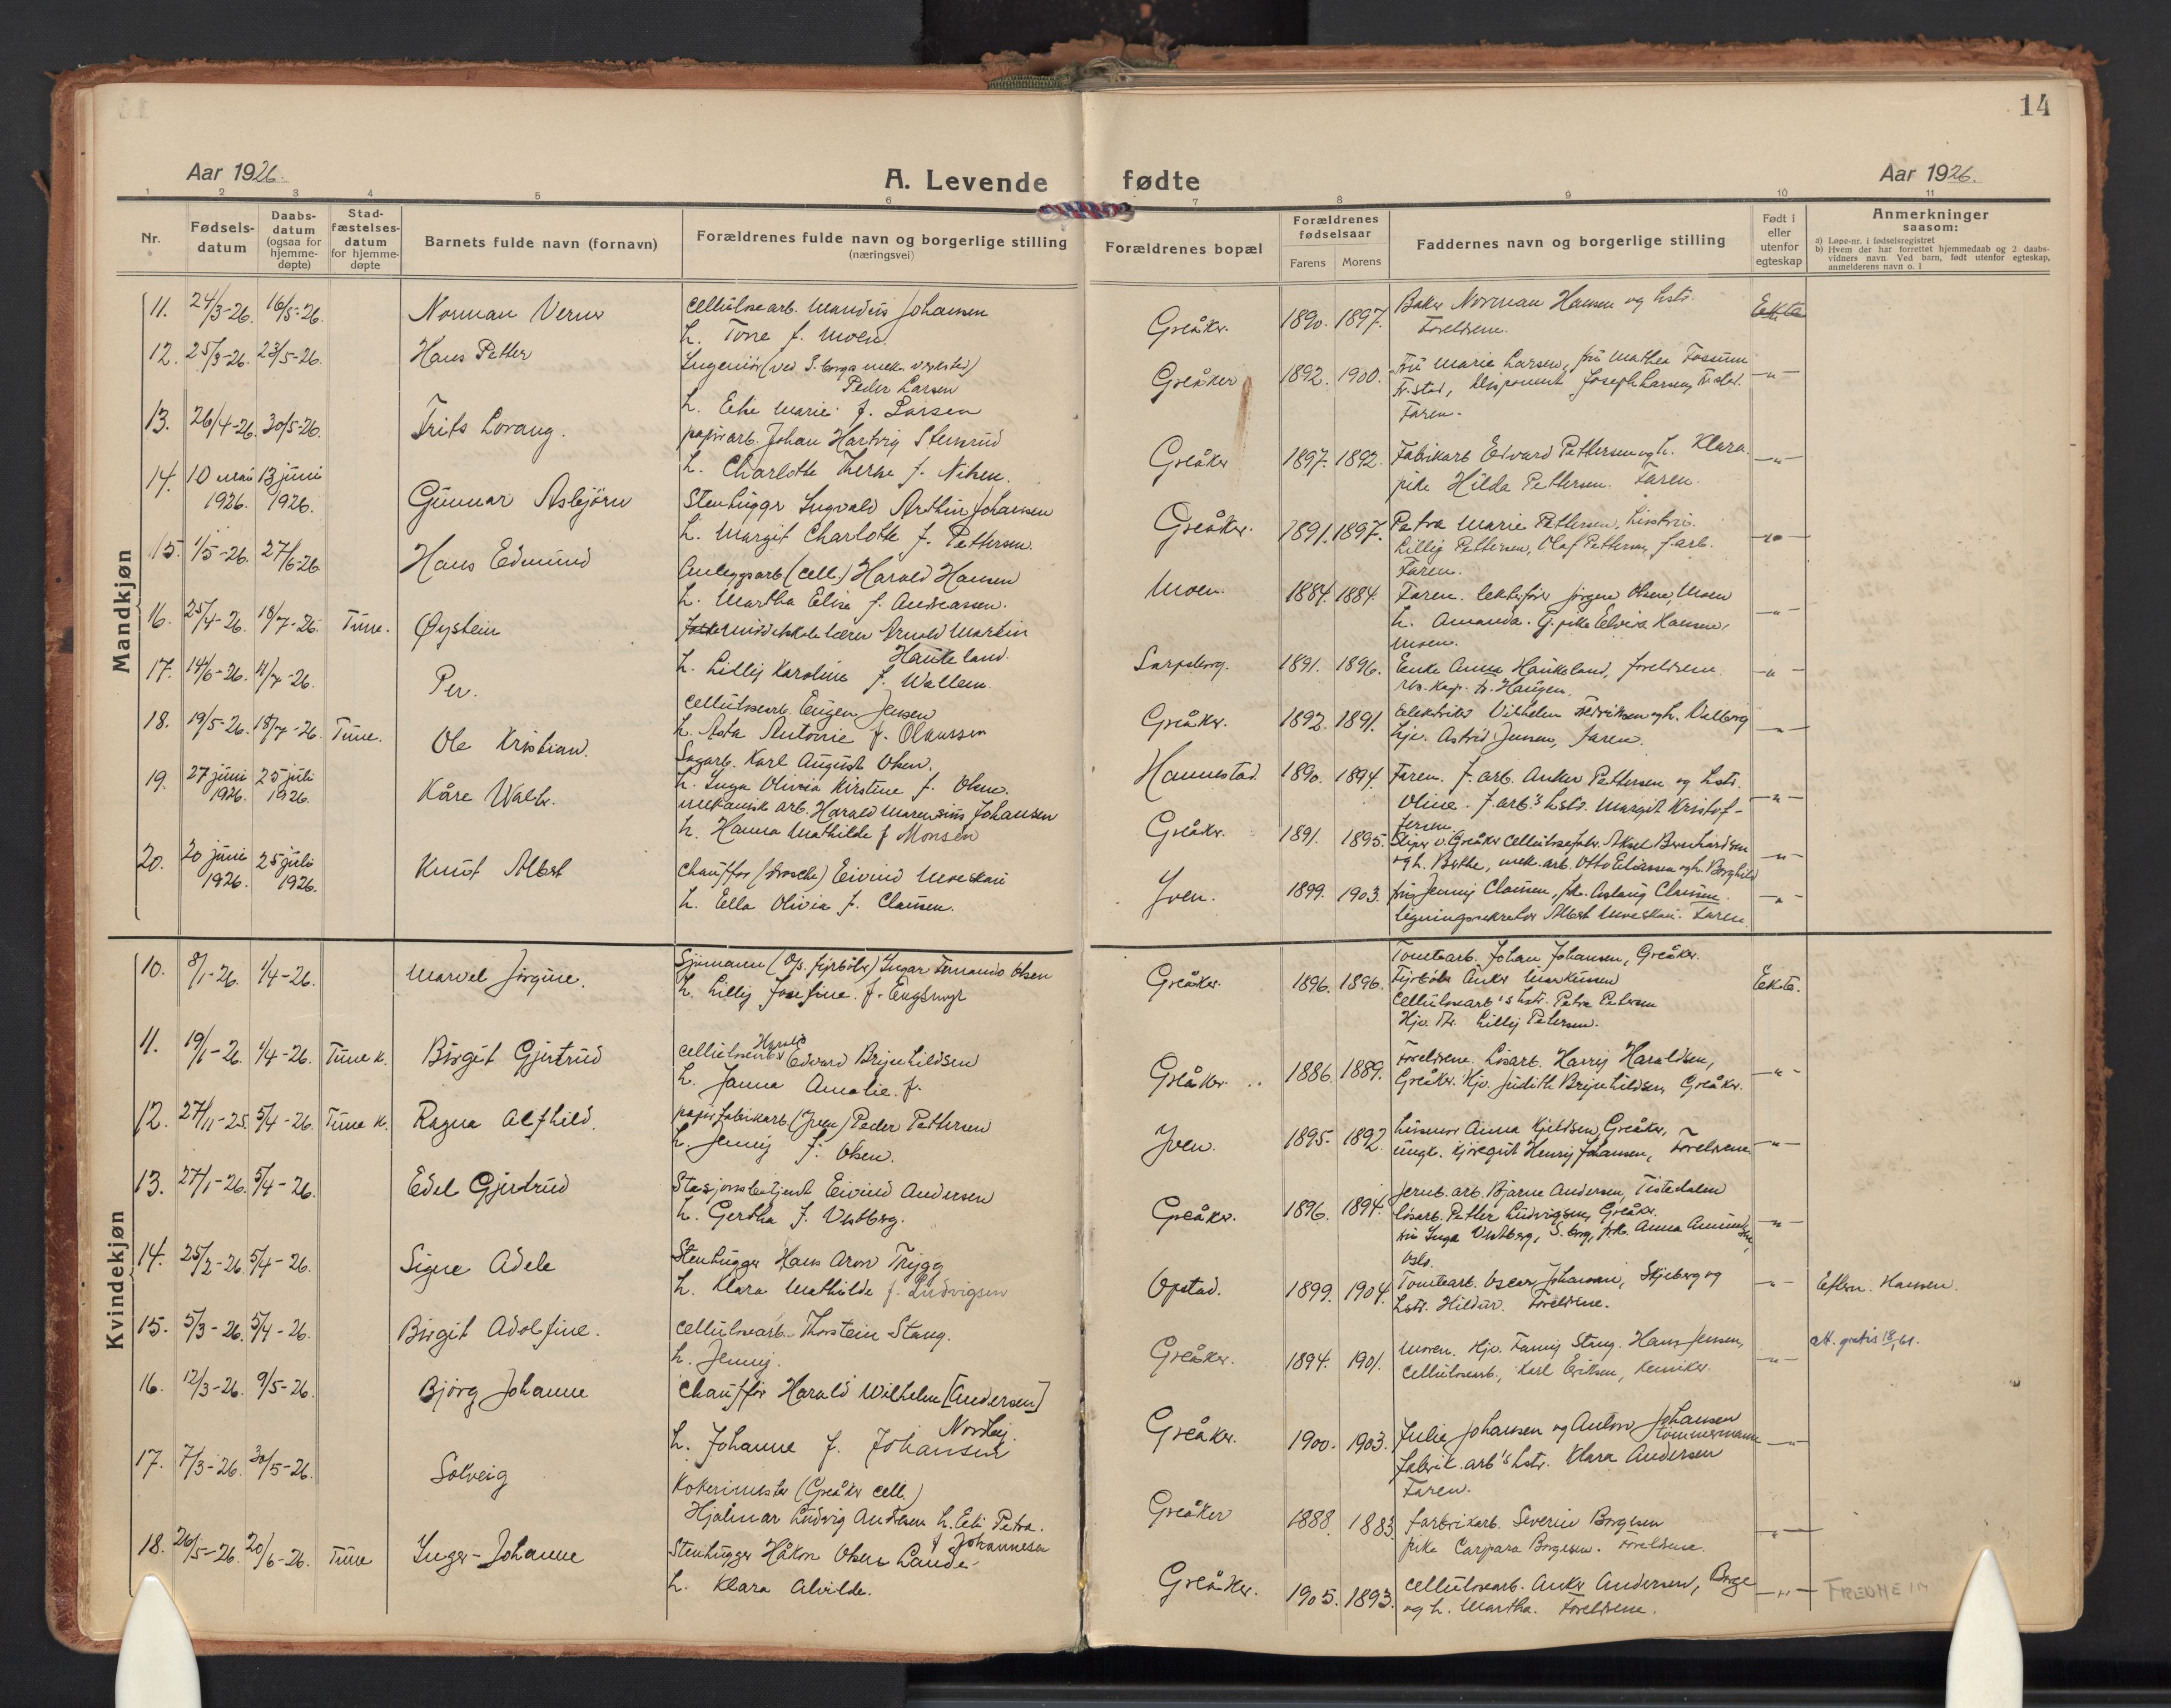 14
Aar 1926.
A. Levende fødte
Aar 1926.
1 2 3 4 5 6 7 8 9 10 11
Nr.
Fødsels-
datum
Daabs-
datum
(ogsaa for
hjemme-
døpte)
Stad-
fæstelses-
datum
for hjemme-
døpte
Barnets fulde navn (fornavn)
Forældrenes fulde navn og borgerlige stilling
(næringsvei)
Forældrenes bopæl
Forældrenes
fødselsaar
Farens Morens
Faddernes navn og borgerlige stilling
Født i
eller
utenfor
egteskap
Anmerkninger
saasom:
a) Løpe-nr. i fødselsregistret
b) Hvem der har forrettet hjemmedaab og 2 daabs-
vidners navn. Ved barn, født utenfor egteskap,
anmelderens navn o. l
Mandkjøn
11. 24/3-26. 16/5-26. Norman Verner
cellulosearb. Mandius Johansen
h. Tone f. Moen.
Greåker. 1890. 1897.
Baker Norman Hansen og hstr.
Foreldrene.
Ekte
12. 25/3-26. 23/5-26. Hans Petter
Ingeniör (ved S.borgs mek. verksted)
Peder Larsen
h. Else Marie f. Larsen
Greåker 1892. 1900.
Fru Marie Larsen, fru Mathea Fossum
Fr.stad, disponent Joseph Larsen, Fr.stad.
Faren.
-"-
13. 26/4-26. 30/5-26. Frits Lorang.
papirarb. Johan Hartvig Stensrud
h. Charlotte Therese f. Nilsen.
Greåker 1897. 1892.
Fabrikarb Edvard Pettersen og h. Klara.
pike Hilda Pettersen. Faren.
-"-
14. 10 mai 13 juni
1926. 1926.
Gunnar Asbjörn
Stenhugger Ingvald Arthur Johansen
h. Margit Charlotte f. Pettersen.
Greåker. 1891. 1897.
Petra Marie Pettersen, hustru.
Lilly Pettersen, Olaf Pettersen, f.arb.
Faren.
-"-
15. 1/5-26. 27/6-26 Hans Edmund
Anleggsarb (cell.) Harald Hansen
h. Martha Elise f. Andreassen.
Moen. 1884. 1884.
Faren. Jörgen Olsen, Moen
h. Amanda. G. pike Elvira Hansen,
Moen.
-"-
16. 25/4-26. 18/7-26. Tune. Øystein
lærer Arnold Martin
Haukeland.
h. Lilly Karoline f. Wallem.
Sarpsborg. 1891. 1896.
Enke Anna Haukeland, foreldrene.
res.kap. Haugen.
-"-
17. 14/6-26. 11/7-26. Per.
cellulosearb. Eugen Jensen
h. Asta Antonie f. Olaussen
Greåker. 1892. 1891.
Elektriker Vilhelm Fredriksen og h. Valborg
hjv. Astrid Jensen, faren.
-"-
18. 19/5-26. 18/7-26. Tune. Ole Kristian.
Sagarb. Karl August Olsen.
h. Inga Olivia Kirstine f. Olsen.
Hannestad. 1890. 1894.
Faren. f.arb. Anker Pettersen og hstr.
Oline. f.arb's hstr. Margit Kristof-
fersen.
-"-
19. 27 juni 25 juli
1926. 1926.
Kåre Walter.
mekanisk arb. Harald Marensius Johansen
h. Hanna Mathilde f Monsen
Greåker. 1891. 1895.
Sliper v. Greåker cellulosefabr. Aksel Bernhardsen
og h. Berthe, mek. arb. Otto Eliassen og h. Borghild
-"-
20. 20 juni 25 juli
1926. 1926.
Knut Albert
chauffør (drosche) Eivind Moeskau
h. Ella Olivia f. Clausen.
Yven. 1899. 1903.
fru Jenny Clausen, frk. Aslaug Clausen.
ligningssekretær Albert Moeskau. Faren.
-"-
Kvindekjøn
10. 8/1-26. 1/4-26. Marvel Jörgine.
Sjömann (Ds. fyrböter) Ingar Fernando Olsen
h. Lilly Josefine. f. Engsmyr
Greåker. 1896. 1896.
Tomtearb. Johan Johansen, Greåker.
Fyrböter Anker Markussen
cellulosearb's hstr. Petra Petersen
Hjv. Lilly Petersen.
Ekte.
11. 19/1-26. 1/4-26. Tune k. Birgit Gjertrud
cellulosearb Harald Edvard Brynhildsen
h. Janna Amalie. f.
Greåker. 1886. 1889.
Foreldrene. Lösarb. Harry Haraldsen,
Greåker. Hjv. Judith Brynhildsen, Greåker.
-"-
12. 27/11-25. 5/4-26. Tune k. Ragna Alfhild.
papirfabrikarb (Yven) Peder Pettersen
h. Jenny f. Olsen.
Yven. 1895. 1892
Anna Kjeldsen, Greåker,
ungk. kjöregut Henry Johansen, Foreldrene.
-"-
13. 27/1-26. 5/4-26. Edel Gjertrud
Stasjonsbetjent Eivind Andersen
h. Gertha f. Vestberg.
Greåker. 1896. 1894.
Jernb. arb. Bjarne Andersen, Tistedalen
lösarb. Petter Ludvigsen, Greåker.
fru Inga Vestberg, S.borg, frk. Anna Amundsen,
Oslo.
-"-
14. 25/2-26. 5/4-26. Signe Adele
Stenhugger Hans Aron Trygg
h. Klara Mathilde f. Ludvigsen
Opstad. 1899. 1904.
Tomtearb. Oscar Johansen, Skjeberg og
hstr. Hildur. Foreldrene.
-"-
Eftern. Hansen.
15. 5/3-26. 5/4-26. Birgit Adolfine.
cellulosearb. Thorstein Stang.
h. Jenny.
Greåker. 1894. 1901.
Moren. Hjv. Fanny Stang. Hans Jensen,
cellulosearb., Karl Eriksen, kemiker.
-"-
att. gratis
16. 12/3-26. 9/5-26. Björg Johanne
Chauffør Harald Wilhelm [Andersen]
Nordby.
h. Johanne f. Johansen
Greåker. 1900. 1903.
Julie Johansen og Anton Johansen
tömmermann
fabrik.arb's hstr. Klara Andersen
Faren.
-"-
17. 7/3-26. 30/5-26. Solveig
Kokerimester (Greåker cell.)
Hjalmar Ludvig Andresen h. Petra.
f Johannesen
Greåker 1888. 1883.
fabrikarb. Severin Borgesen
pike Borgesen. Foreldrene.
-"-
18. 26/5-26. 20/6-26. Tune Inger-Johanne
Stenhugger Håkon Olsen Lande
h. Klara Alvilde.
Greåker. 1905. 1893.
cellulosearb. Anker Andersen, Borge
og h. Martha. Foreldrene.
-"-